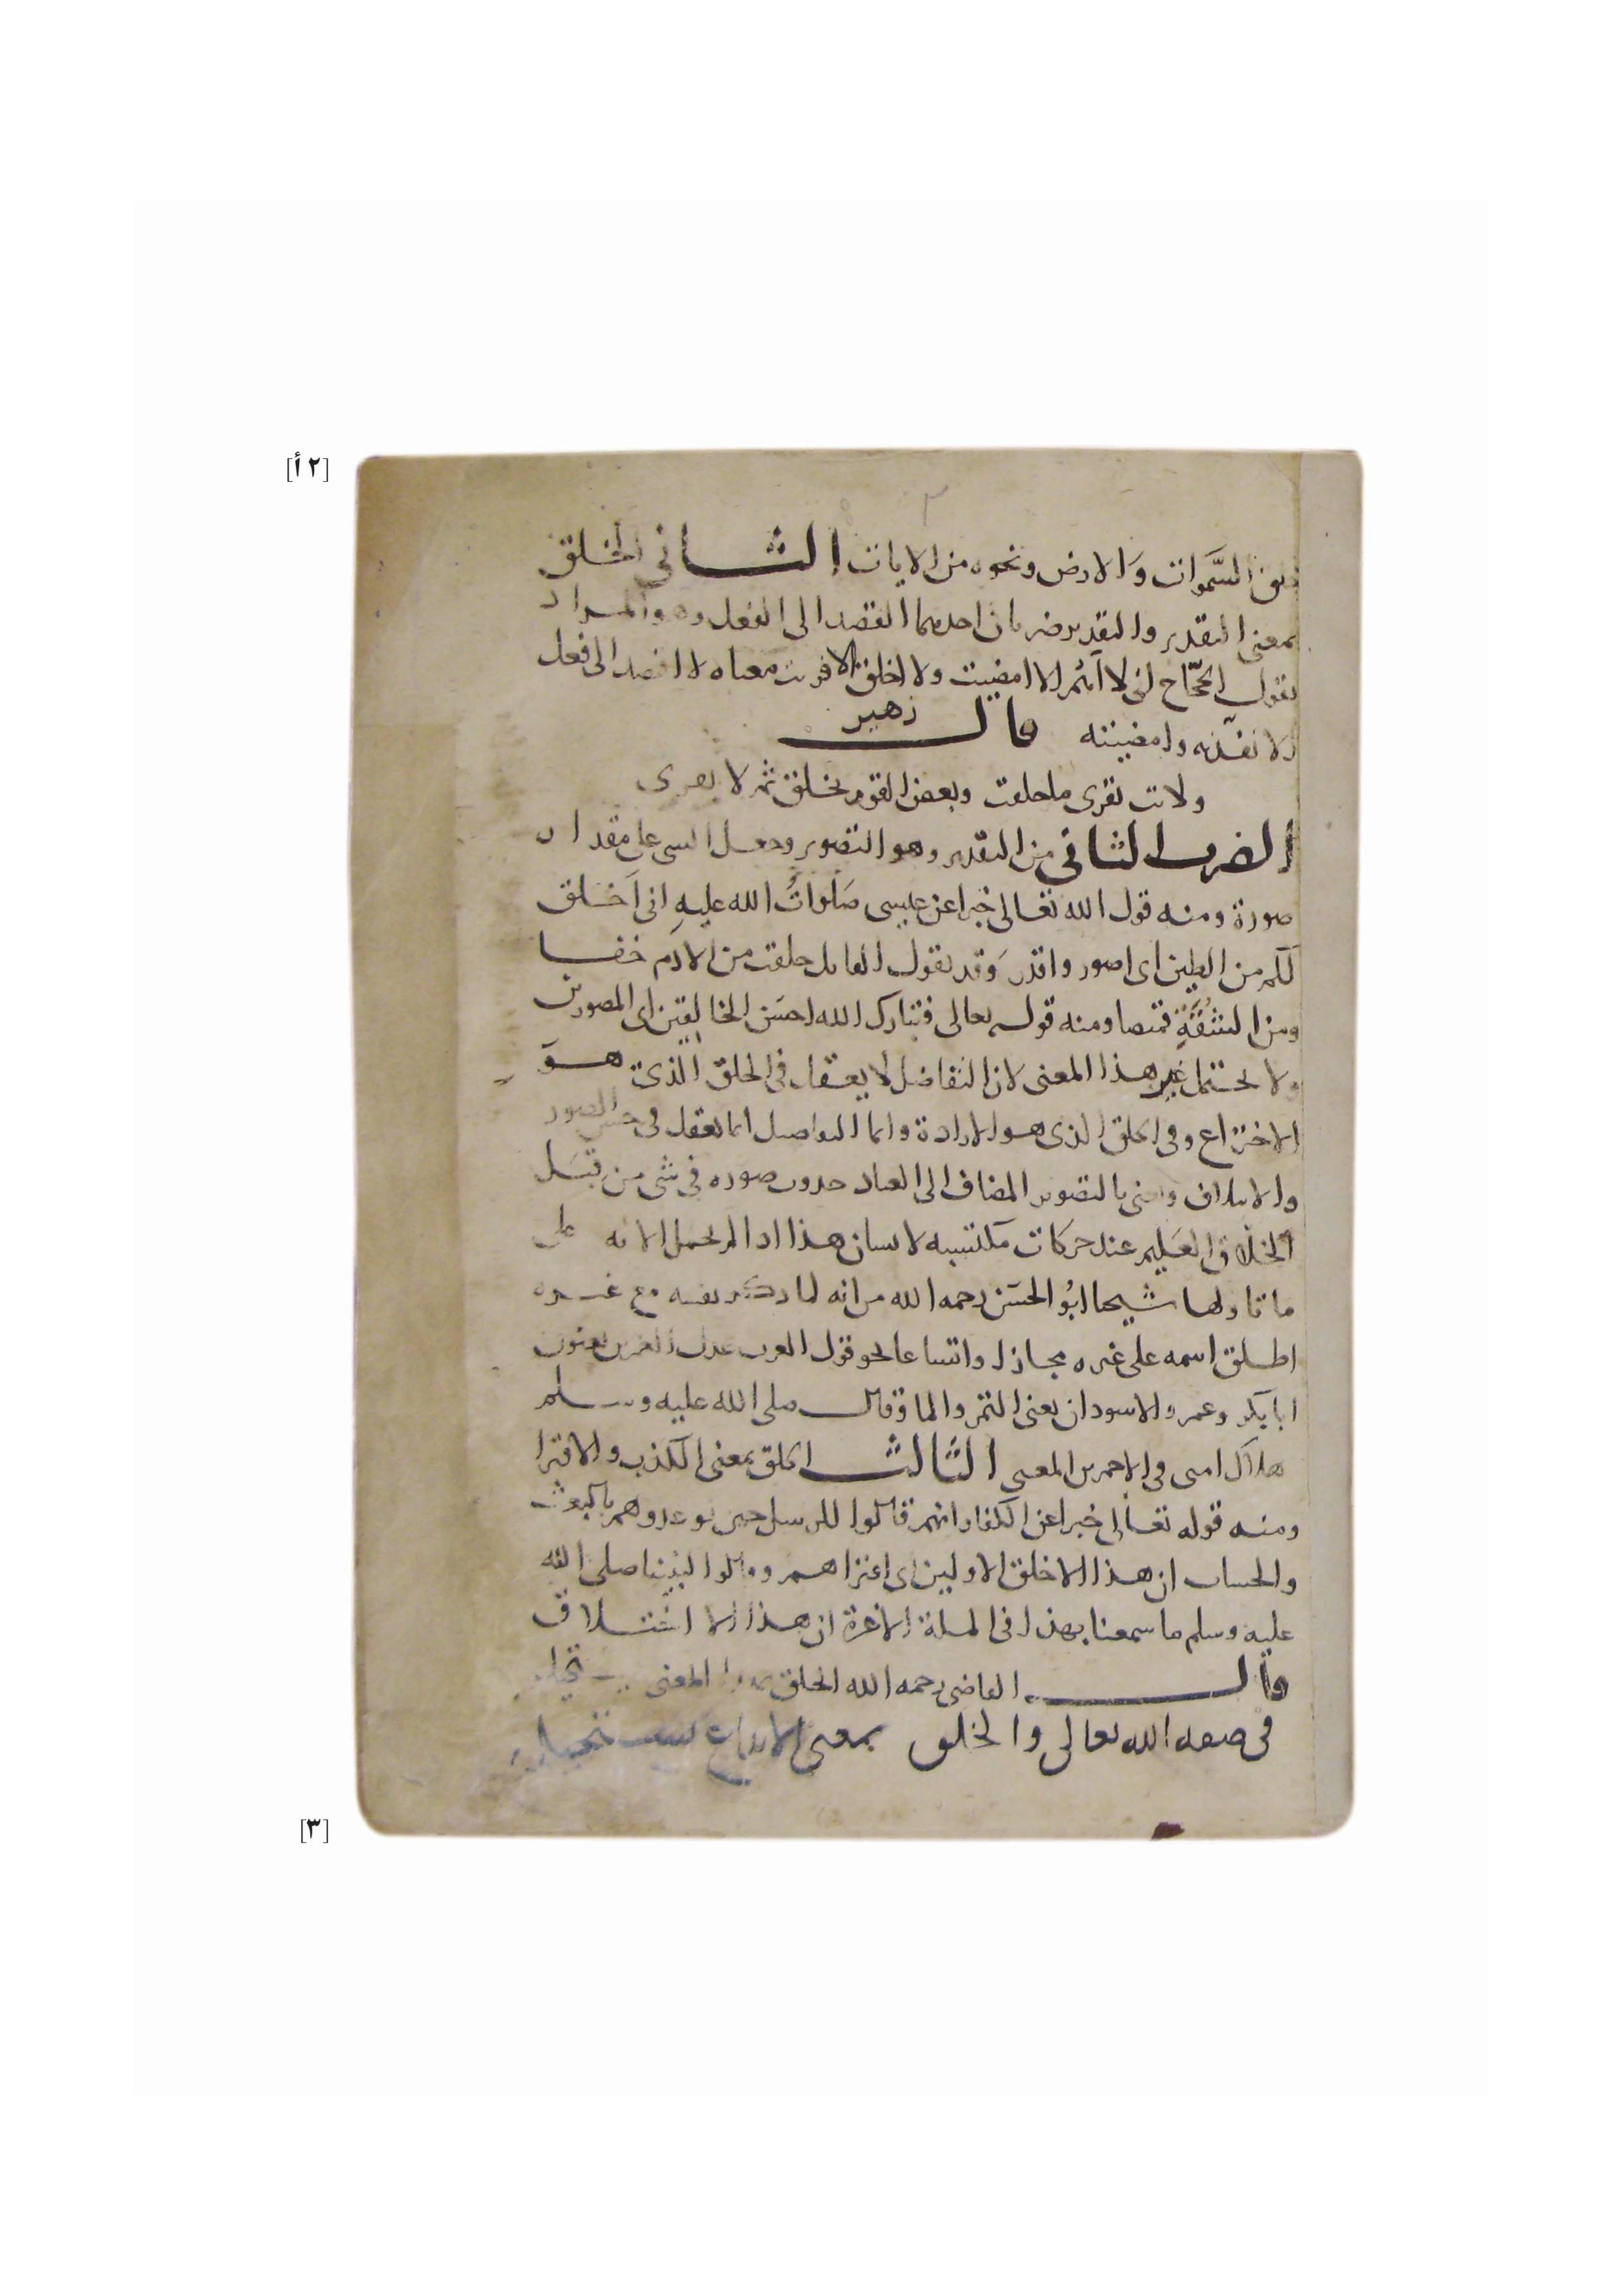 [٢ أ]
خلق السَّموات وَالارض ونحوه من الايات الثاني الخلق
بمعنى التقدير والتقدير ضربان احدهما القصد الى الفعل وهو المراد
بقول الحجّاج انى لا اهُم الا امضيت ولا اخلق الا فريت معناه لا اقصد الى فعل
الا نفذته وامضيته قال زهير
ولانت تفرى ما خلقت وبعض القوم يخلق ثم لا يفرى
الضرب الثانى من التقدير وهو التصوير وجعل الشى على مقدار
صورة ومنه قول الله تعالى خبرا عن عيسى صَلوَاتُ الله عليهِ انى اَخلق
لكم من الطين اى اصور واقدر وَقد يقول القايل خلقت من الادَم خفا
ومن الشُقَّةِ قميصا ومنه قوله تعالى فتبارك الله احسَن الخالقين اى المصورين
ولا يحتمل غير هذا المعنى لان التفاضل لا يعقل فى الخلق الذى هوَ
الاختراع وفى الخلق الذى هو الارادة وانما التفاضل انما يعقل فى حسن الصور
والايتلاف واعنى بالتصوير المضاف الى العباد حدوث صوره فى شى من قبَل
الخلّاق العَليم عند حركات مكتسبه لانسان هذا اذا لم تحمل الايه على
ما تاولها شيخنا ابُو الحسَن رحمه الله من انه لما ذكر نفسه مع غيره
اطلق اسمه على غيره مجازا واتساعا نحو قول العرب عدل العمرين يعنون
ابا بكر وعمر والاسودان يعنى التمر والما وقال صلى الله عليه وسلم
هلاك امتى فى الاحمرين المعنى الثالث الخلق بمعنى الكذب والافترا
ومنه قوله تعالى خبرا عن الكفار انهم قالوا للرسل حين توعدوهم بالبعث
والحساب ان هذا الا خلق الاولين اى افتراهم وقالوا لنبينا صلى الله
عليه وسلم ما سمعنا بهذا فى الملة الاخرة ان هذا الا اختلاق
قال القاضى رحمه الله الخلق بهذا المعنى
فى صفه الله تعالى والخلق بمعنى الابداع
[٣]